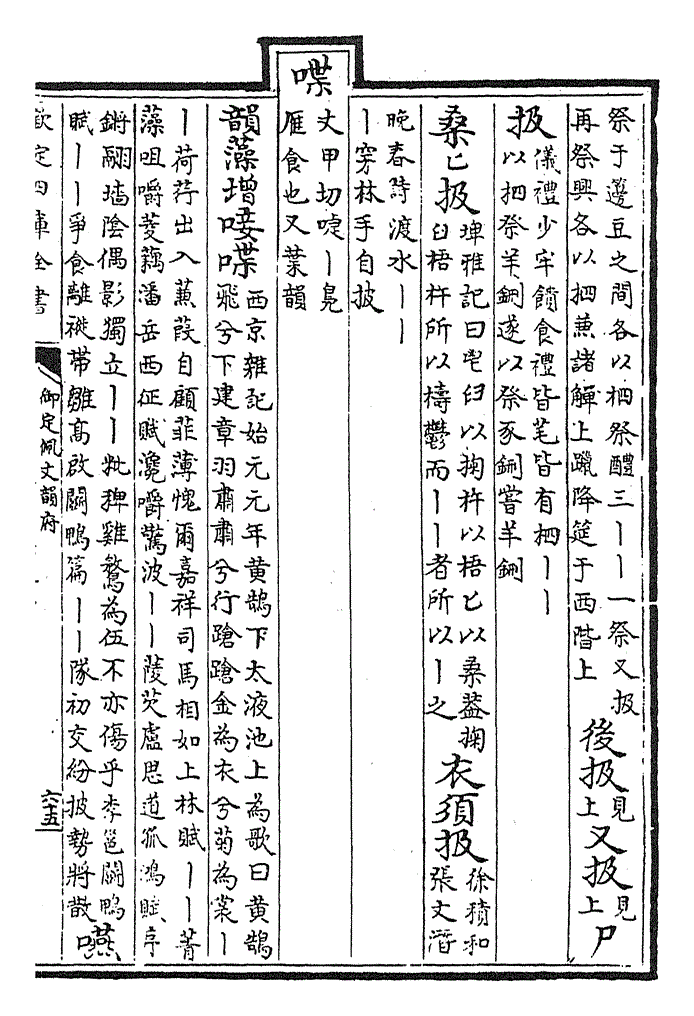 祭于籩豆之間各以柶祭醴三丨丨一祭又扱
再祭興各以柶兼諸觶上躐降筵于西階上
後扱見上又扱見上尸
扱
儀禮少牢饋食禮皆芼皆有柶丨丨
以柶祭羊鉶遂以祭豕鉶嘗羊鉶
桑匕扱
埤雅記曰鬯臼以掬杵以梧匕以桑葢掬
臼梧杵所以擣鬱而丨丨者所以丨之
衣須扱
徐積和
張文潛
晚春詩渡水丨丨
丨穿林手自披
喋
丈甲切啑丨鳧
雁食也又葉韻
韻藻增唼喋
西京雜記始元元年黄鵠下太液池上為歌曰黄鵠
飛兮下建章羽肅肅兮行蹌蹌金為衣兮菊為裳丨
丨荷荇出入蒹葭自顧菲薄愧爾嘉祥司馬相如上林賦丨丨菁
藻咀嚼菱藕潘岳西征賦瀺嚼驚波丨丨陵芡盧思道孤鴻賦序
鏘翮墙陰偶影獨立丨丨粃稗雞鶩為伍不亦傷乎李邕鬭鴨
賦丨丨爭食離褷帶雛高啟鬭鴨篇丨丨隊初交紛披勢將散
嚥
欽定四庫全書
御定佩文韻府
六十五